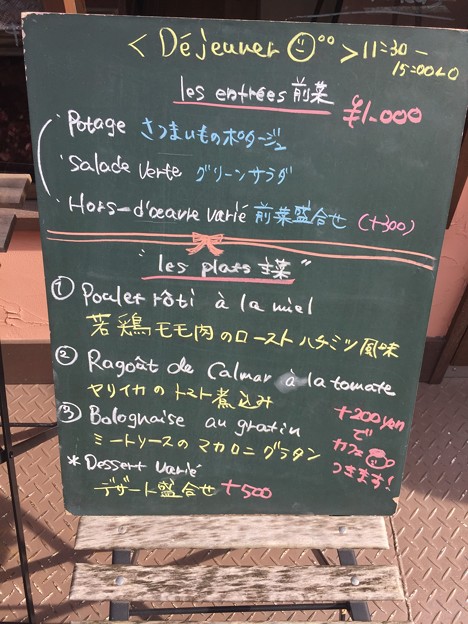 < Déjeuner > 11:30 -
15:00 L.O
les entrées 前菜
¥1,000
・Potage さつまいものポタージュ
・Salade verte グリーンサラダ
・Hors-d'œuvre varié 前菜盛合せ (+300)
"les plats 主菜"
① Poulet rôti à la miel
若鶏モモ肉のロースト ハチミツ風味
② Ragoût de Calmar à la tomate
ヤリイカのトマト煮込み
③ Bolognaise au gratin
ミートソースのマカロニグラタン
* Dessert varié
デザート盛合せ +500
+200yen
で
カフェ
つきます!